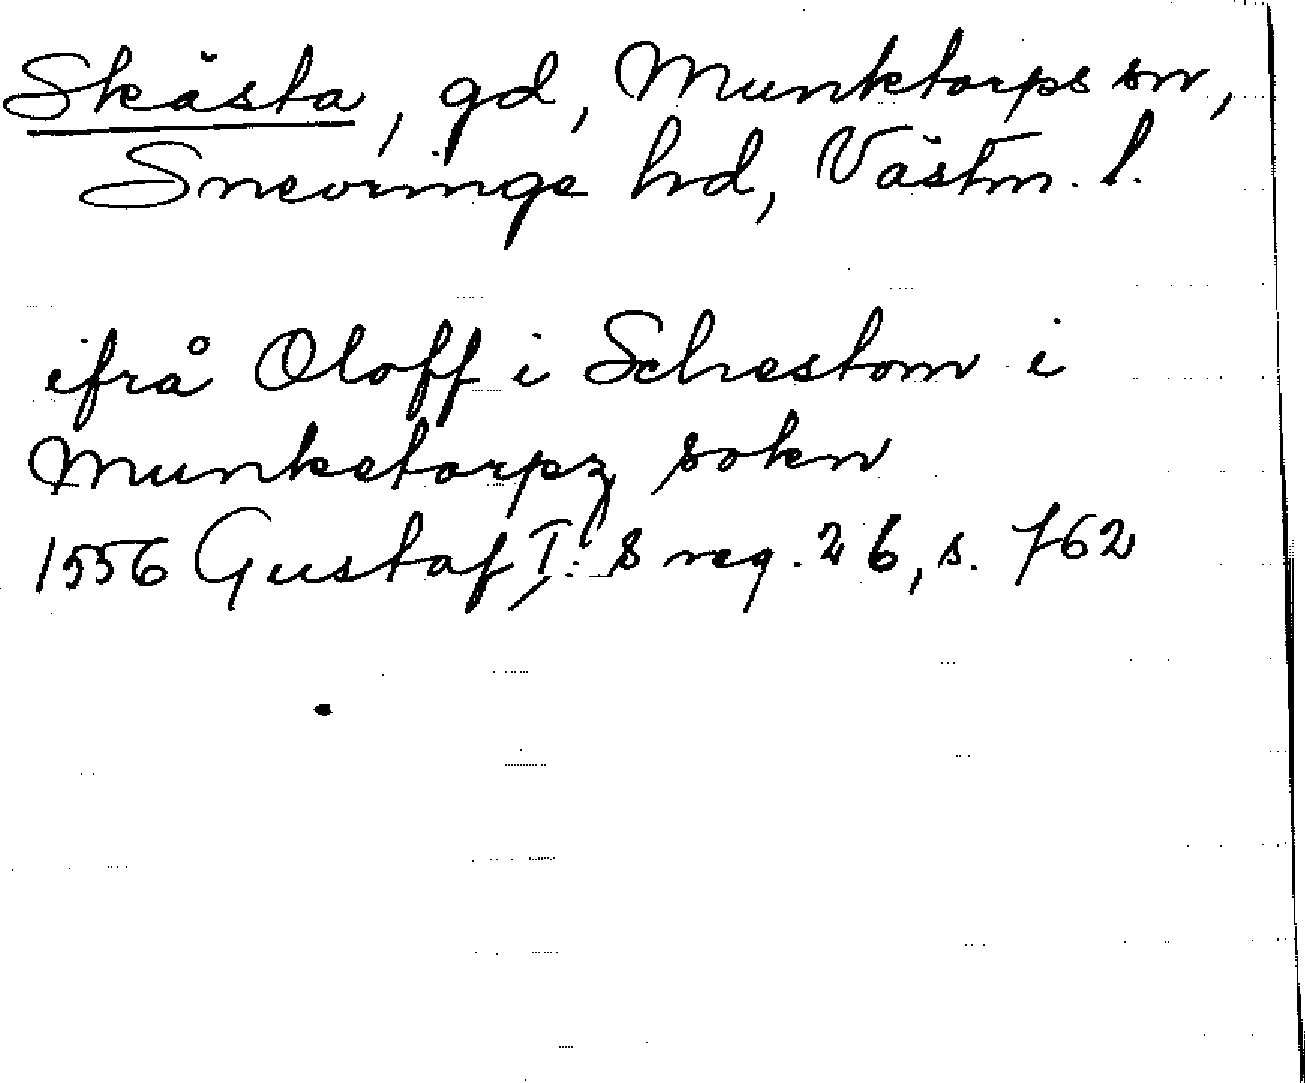 Skästa, gd, Munktorps sn,
Snevringe hd, Västm. l.
ifrå Oloff i Schestom i
Munketorpz sokn
1556 Gustaf I:s reg. 26, s. 762